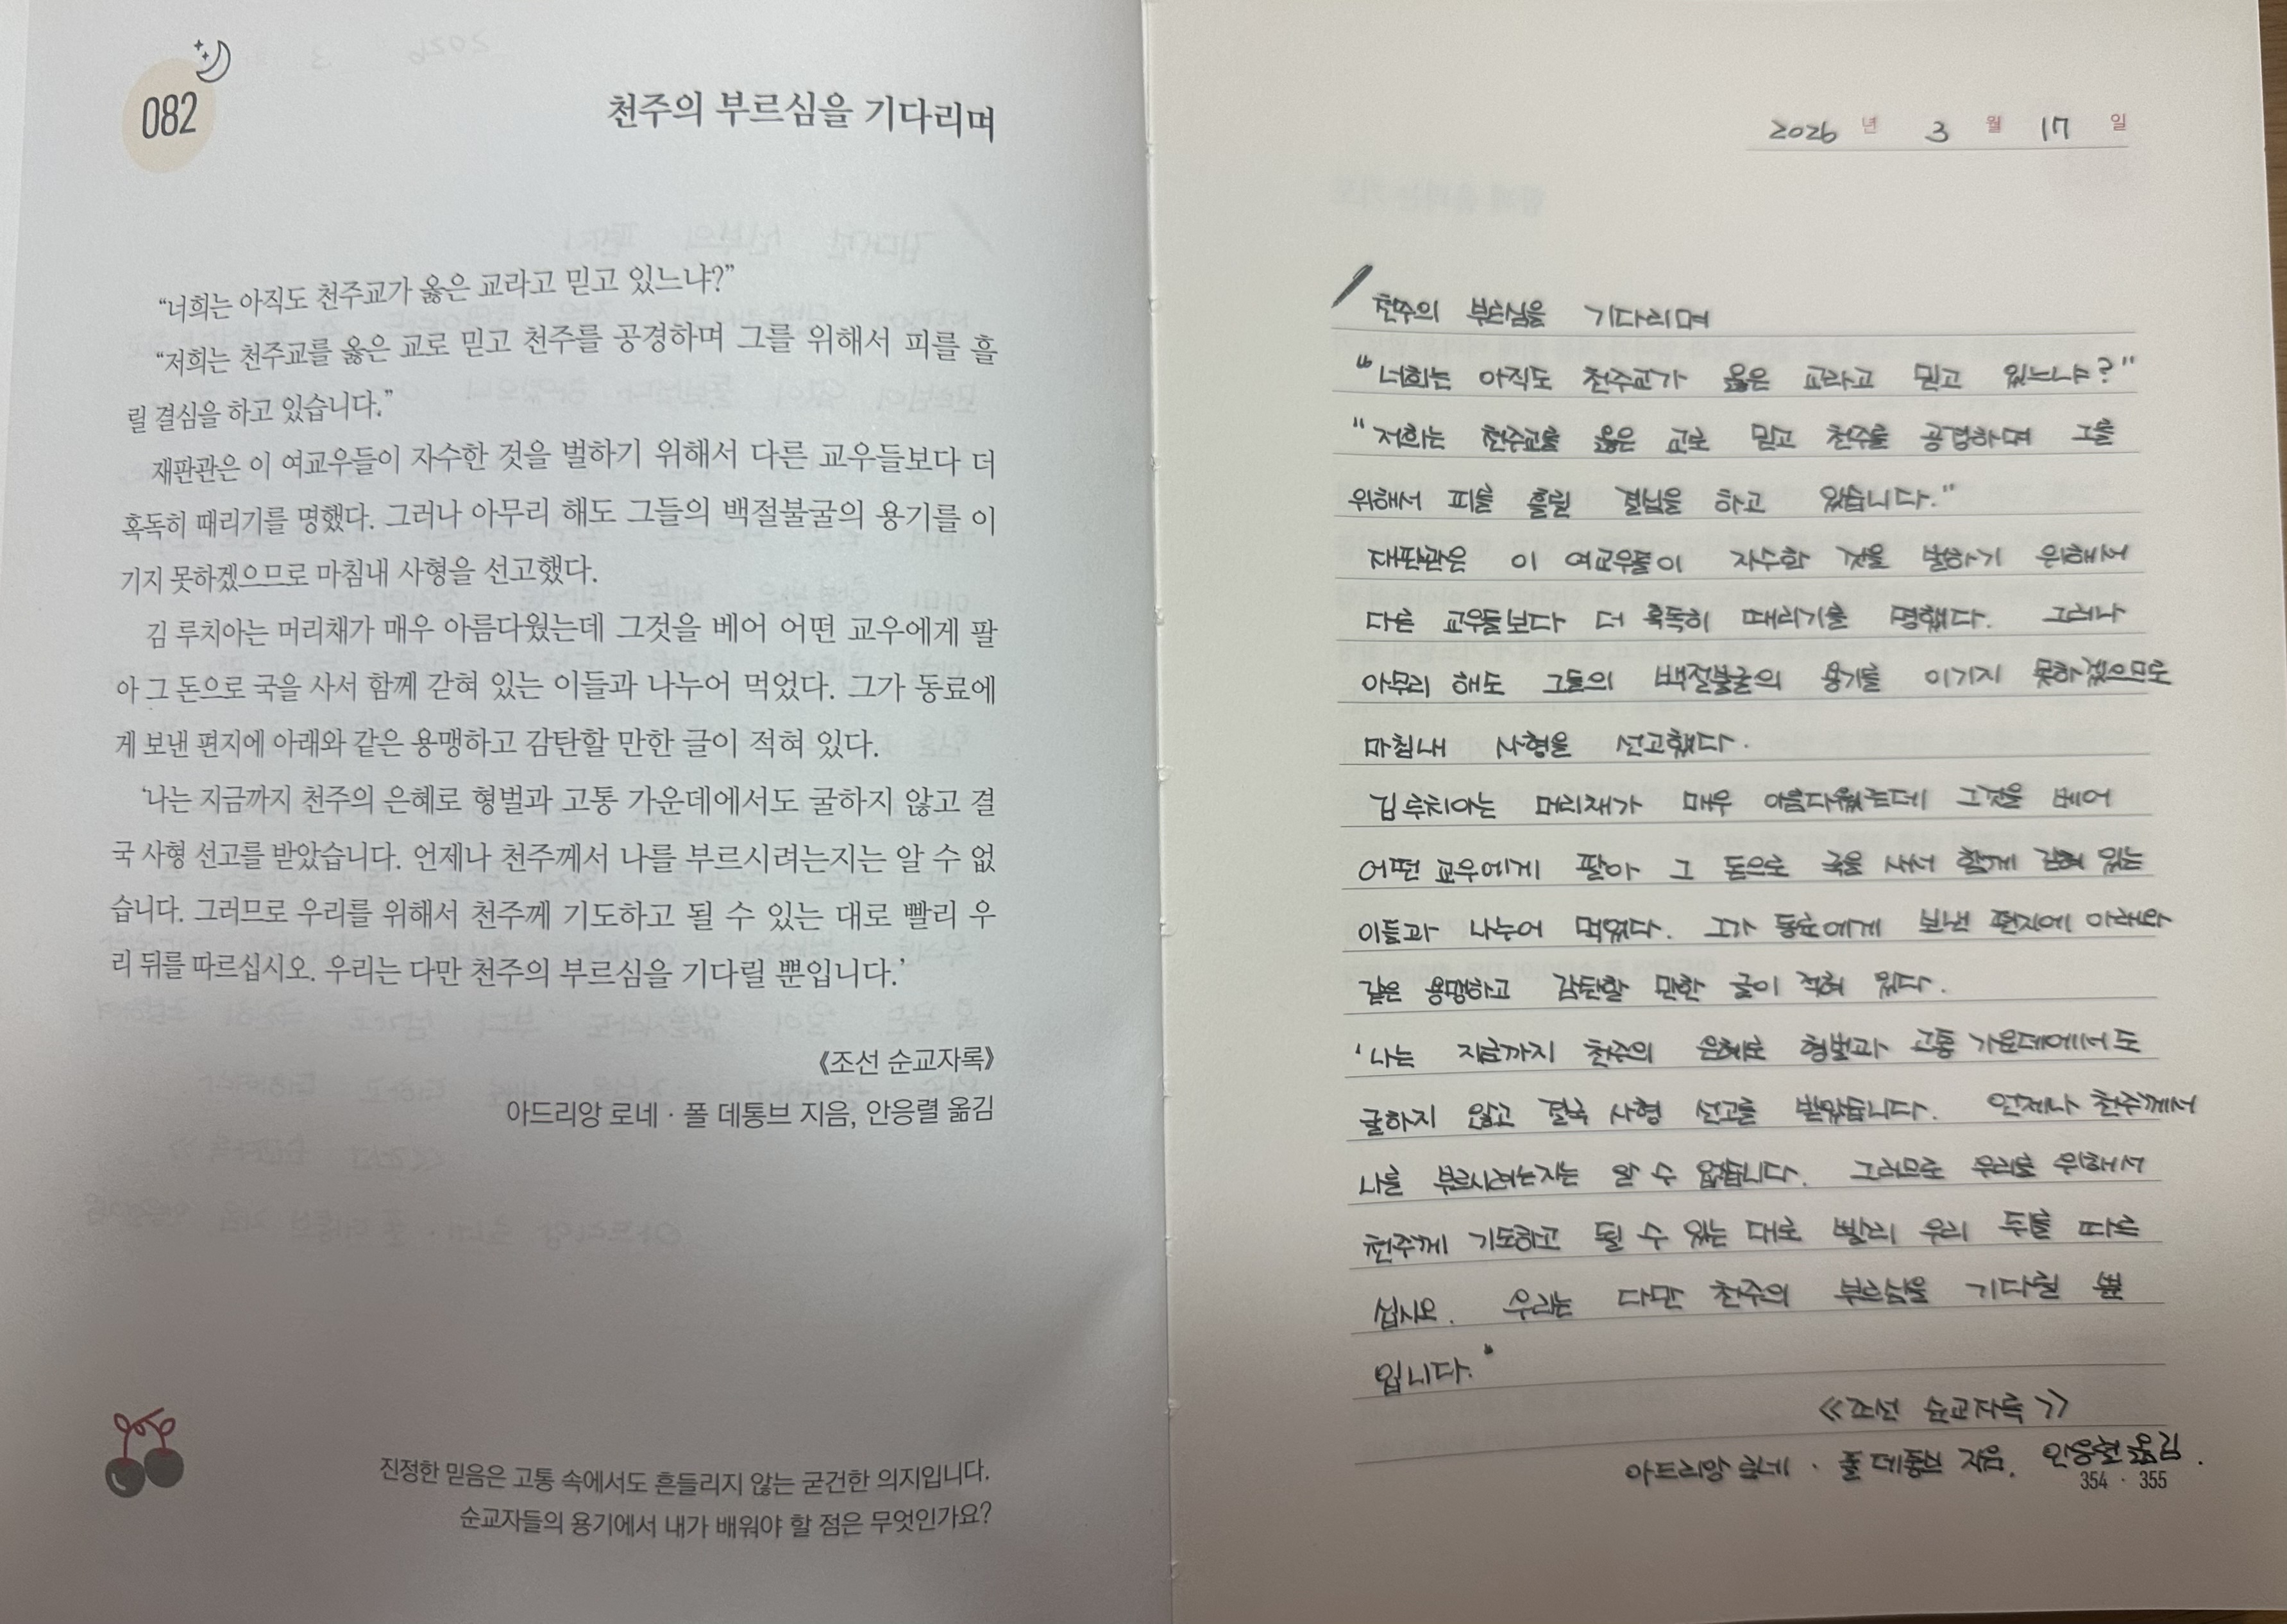 082
천주의 부르심을 기다리며
“너희는 아직도 천주교가 옳은 교라고 믿고 있느냐?”
“저희는 천주교를 옳은 교로 믿고 천주를 공경하며 그를 위해서 피를 흘
릴 결심을 하고 있습니다.”
재판관은 이 여교우들이 자수한 것을 벌하기 위해서 다른 교우들보다 더
혹독히 때리기를 명했다. 그러나 아무리 해도 그들의 백절불굴의 용기를 이
기지 못하겠으므로 마침내 사형을 선고했다.
김 루치아는 머리채가 매우 아름다웠는데 그것을 베어 어떤 교우에게 팔
아 그 돈으로 국을 사서 함께 갇혀 있는 이들과 나누어 먹었다. 그가 동료에
게 보낸 편지에 아래와 같은 용맹하고 감탄할 만한 글이 적혀 있다.
‘나는 지금까지 천주의 은혜로 형벌과 고통 가운데에서도 굴하지 않고 결
국 사형 선고를 받았습니다. 언제나 천주께서 나를 부르시려는지는 알 수 없
습니다. 그러므로 우리를 위해서 천주께 기도하고 될 수 있는 대로 빨리 우
리 뒤를 따르십시오. 우리는 다만 천주의 부르심을 기다릴 뿐입니다.’
《조선 순교자록》
아드리앙 로네 · 폴 데통브 지음, 안응렬 옮김
진정한 믿음은 고통 속에서도 흔들리지 않는 굳건한 의지입니다.
순교자들의 용기에서 내가 배워야 할 점은 무엇인가요?
2026 년 3 월 17 일
천주의 부르심을 기다리며
“너희는 아직도 천주교가 옳은 교라고 믿고 있느냐?”
“저희는 천주교를 옳은 교로 믿고 천주를 공경하며 그를
위해서 피를 흘릴 결심을 하고 있습니다.”
재판관은 이 여교우들이 자수한 것을 벌하기 위해서
다른 교우들보다 더 혹독히 때리기를 명했다. 그러나
아무리 해도 그들의 백절불굴의 용기를 이기지 못하겠으므로
마침내 사형을 선고했다.
김 루치아는 머리채가 매우 아름다웠는데 그것을 베어
어떤 교우에게 팔아 그 돈으로 국을 사서 함께 갇혀 있는
이들과 나누어 먹었다. 그가 동료에게 보낸 편지에 아래와
같은 용맹하고 감탄할 만한 글이 적혀 있다.
‘나는 지금까지 천주의 은혜로 형벌과 고통 가운데에서도
굴하지 않고 결국 사형 선고를 받았습니다. 언제나 천주께서
나를 부르시려는지는 알 수 없습니다. 그러므로 우리를 위해서
천주께 기도하고 될 수 있는 대로 빨리 우리 뒤를 따르
십시오. 우리는 다만 천주의 부르심을 기다릴 뿐
입니다.’
《조선 순교자록》
아드리앙 로네 · 폴 데통브 지음, 안응렬 옮김.
354 · 355